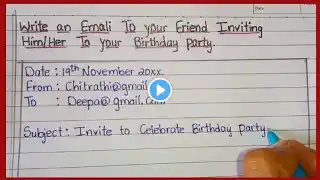 Write an Emali To your Friend Inviting
Him/Her To your Birthday Party.
Date : 19th November 20xx.
From : Chitrathi@gmail
To : Deepa@gmail.com
Subject : Invite to Celebrate Birthday Party